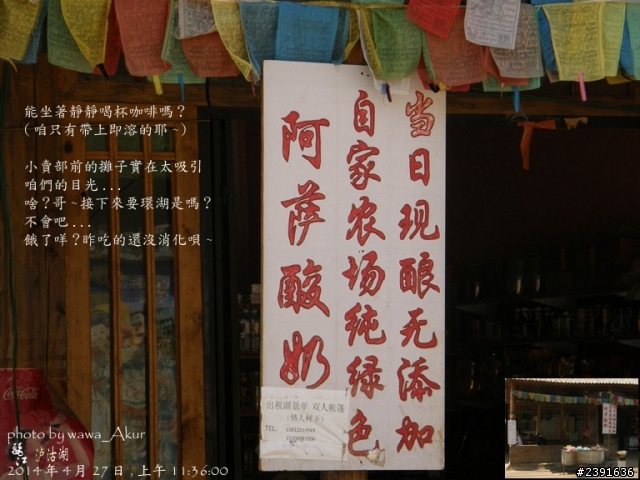 能坐著靜靜喝杯咖啡嗎？
(咱只有帶上即溶的耶~)
小賣部前的攤子實在太吸引
咱們的目光...
啥？哥~接下來要環湖是嗎？
不會吧...
餓了咩？昨吃的還沒消化唄~
当日现酿无添加
自家农场纯绿色
阿萨酸奶
双人帐篷
(情人树下)
TEL.
Coca-Cola
photo by wawa_Akur
泸沽湖
2014年4月27日,上午11:36:00
#2391636